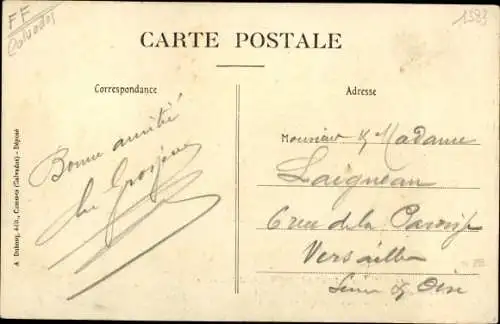 FF
Calvados
1383
CARTE POSTALE
Correspondance
Adresse
Bonne amitié
Monsieur & Madame
Laigneau
6 rue de la Paroisse
Versailles
Seine & Oise
A. Dubosq, édit., Caumont (Calvados) - Déposé